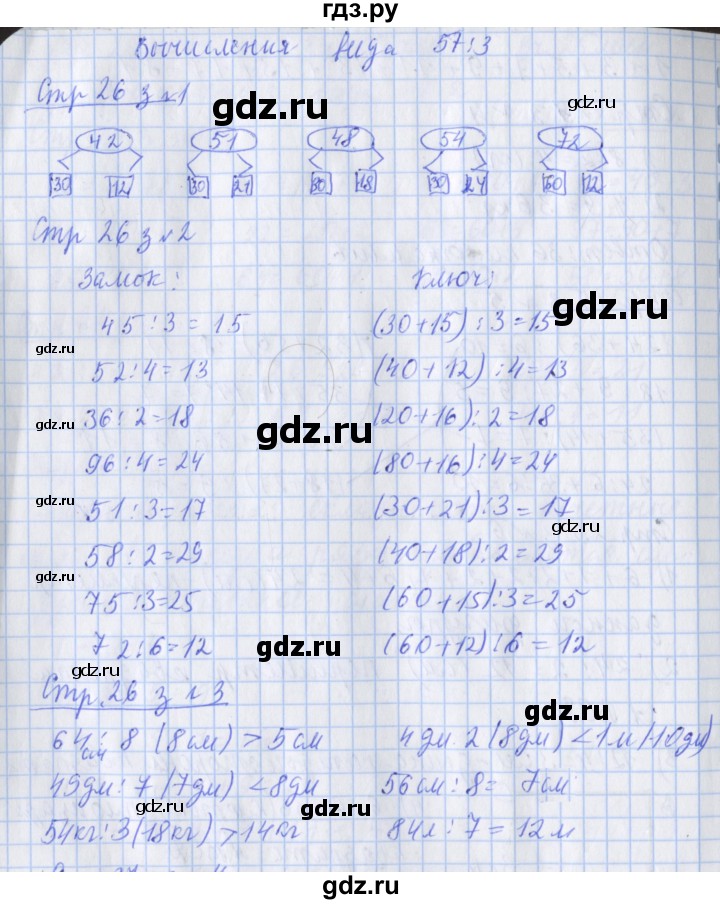 гдз.ру
Вычисления вида 57:3
Стр 26 з №1
gdz.ru gdz.ru
42 51 48 54 72
30 12 30 21 30 18 30 24 60 12
Стр 26 з №2
Замок: Ключ:
gdz.ru
45:3=15 (30+15):3=15
gdz.ru
52:4=13 (40+12):4=13
gdz.ru 36:2=18 (20+16):2=18
gdz.ru
96:4=24 (80+16):4=24
gdz.ru
51:3=17 (30+21):3=17
gdz.ru
58:2=29 (40+18):2=29
gdz.ru
75:3=25 (60+15):3=25
72:6=12 gdz.ru (60+12):6=12 gdz.ru
gdz.ru
Стр. 26 з №3
64см:8 (8см) > 5см 4дм·2 (8дм) < 1м (10дм)
49дм:7 (7дм) < 8дм 56см:8= 7см
54кг:3 (18кг) > 14кг 84м:7=12м
gdz.ru gdz.ru
gdz.ru